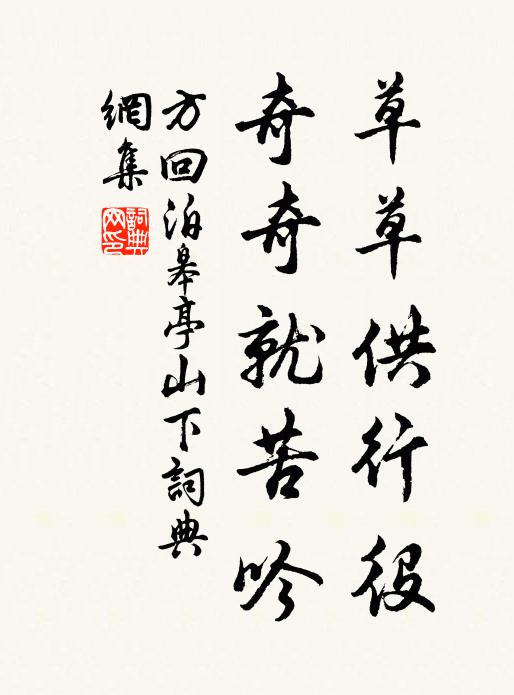 草草供行役
奇奇就苦吟
方回泊皋亭山下詞典
網集
詞典网印